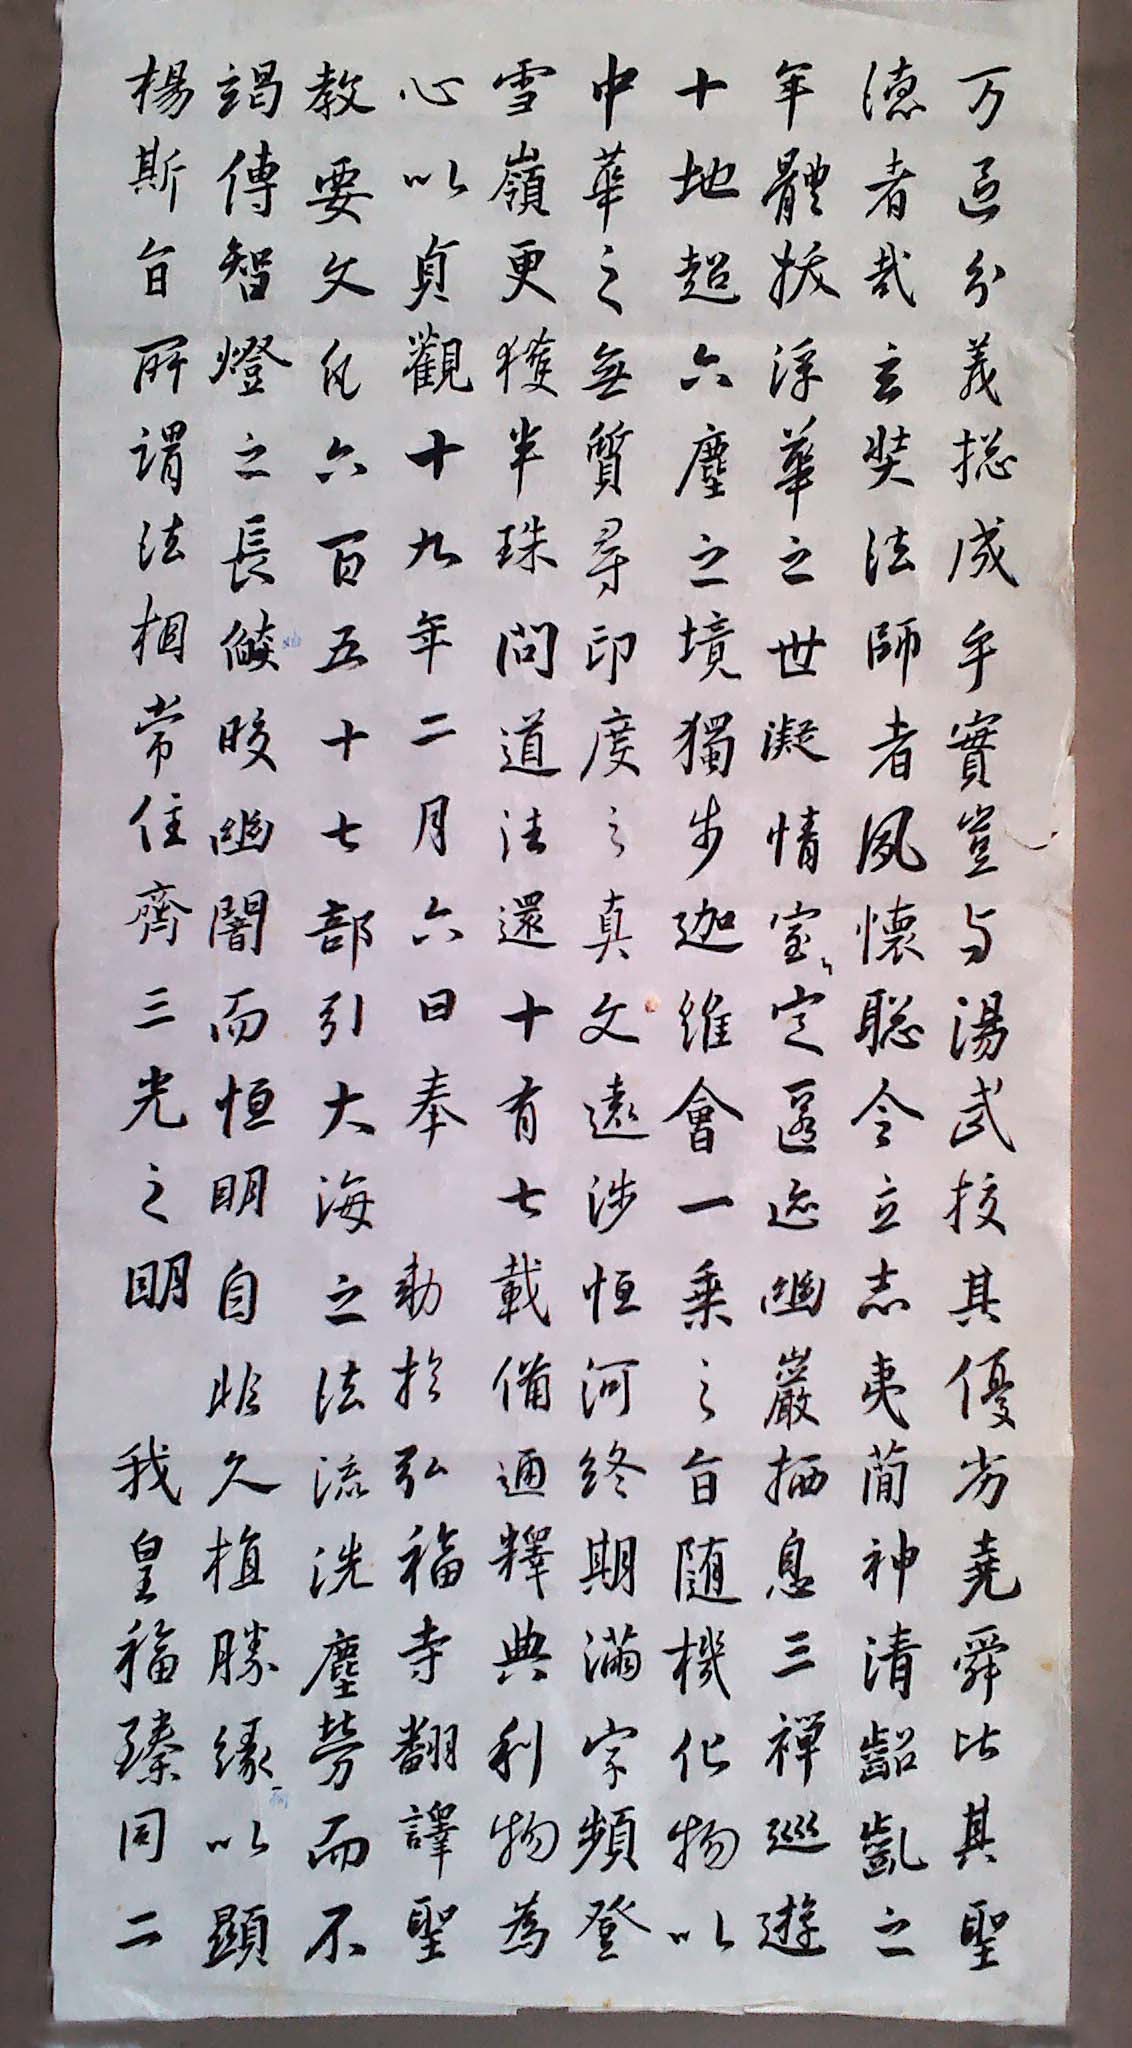 万區分義揔成乎實豈与湯武挍其優劣堯舜比其聖
德者哉玄奘法師者夙懷聰令立志夷蕳神清齠齓之
年體拔浮華之世凝情室定匿迹幽巖栖息三禪巡遊
十地超六塵之境獨步迦維會一乘之旨随機化物以
中華之無質尋印度之真文遠涉恒河終期滿字頻登
雪嶺更獲半珠問道法還十有七載備通釋典利物為
心以貞觀十九年二月六日奉 勅於弘福寺翻譯聖
教要文凡六百五十七部引大海之法流洗塵勞而不
竭傳智燈之長焰皎幽闇而恒明自非久植勝緣以顯
楊斯旨所謂法相常住齊三光之明 我皇福臻同二